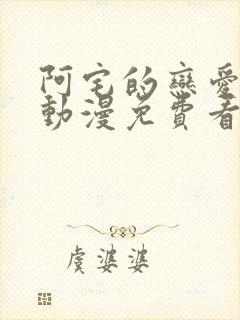 阿宅的戀愛
動漫免費看
虞婆婆